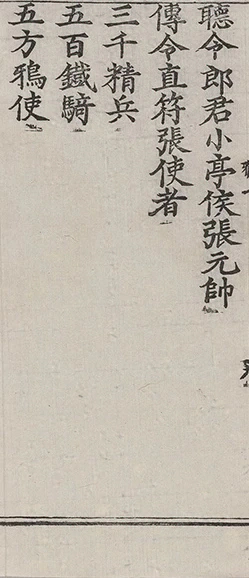 聽令郎君小亭侯張元帥
傳令直符張使者
三千精兵
五百鐵騎
五方鴉使